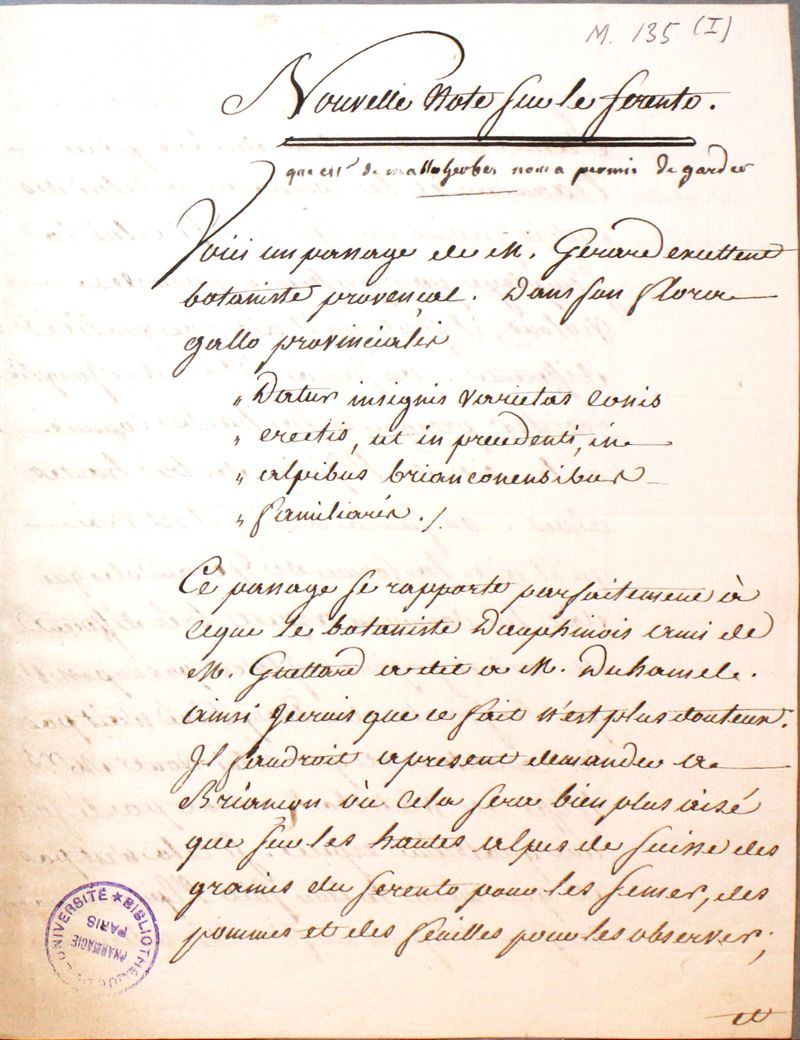 M. 135 (I)
Nouvelle Note sur le serento.
que M.r de mallesherbes nous a permis de garder
Voici un passage de M. Gerard excellent
botaniste provencal. Dans son flora
gallo provincialis
„ Datur insignis varietas conis
„ erectis, ut in precedenti, in
„ alpibus brianconensibus
„ familiaris ./
Ce passage se rapporte parfaitement à
ceque le botaniste Dauphinois ami de
M. Guettard a dit a M. Duhamel.
ainsi Jecrois que ce fait n'est plus douteux.
Il faudroit apresent demander a
Briançon où cela sera bien plus aisé
que sur les hautes alpes de suisse des
graines du serento pour les semer, des
pommes et des feuilles pour les observer;
et
UNIVERSITÉ ★ BIBLIOTHÈQUE
PHARMACIE
PARIS